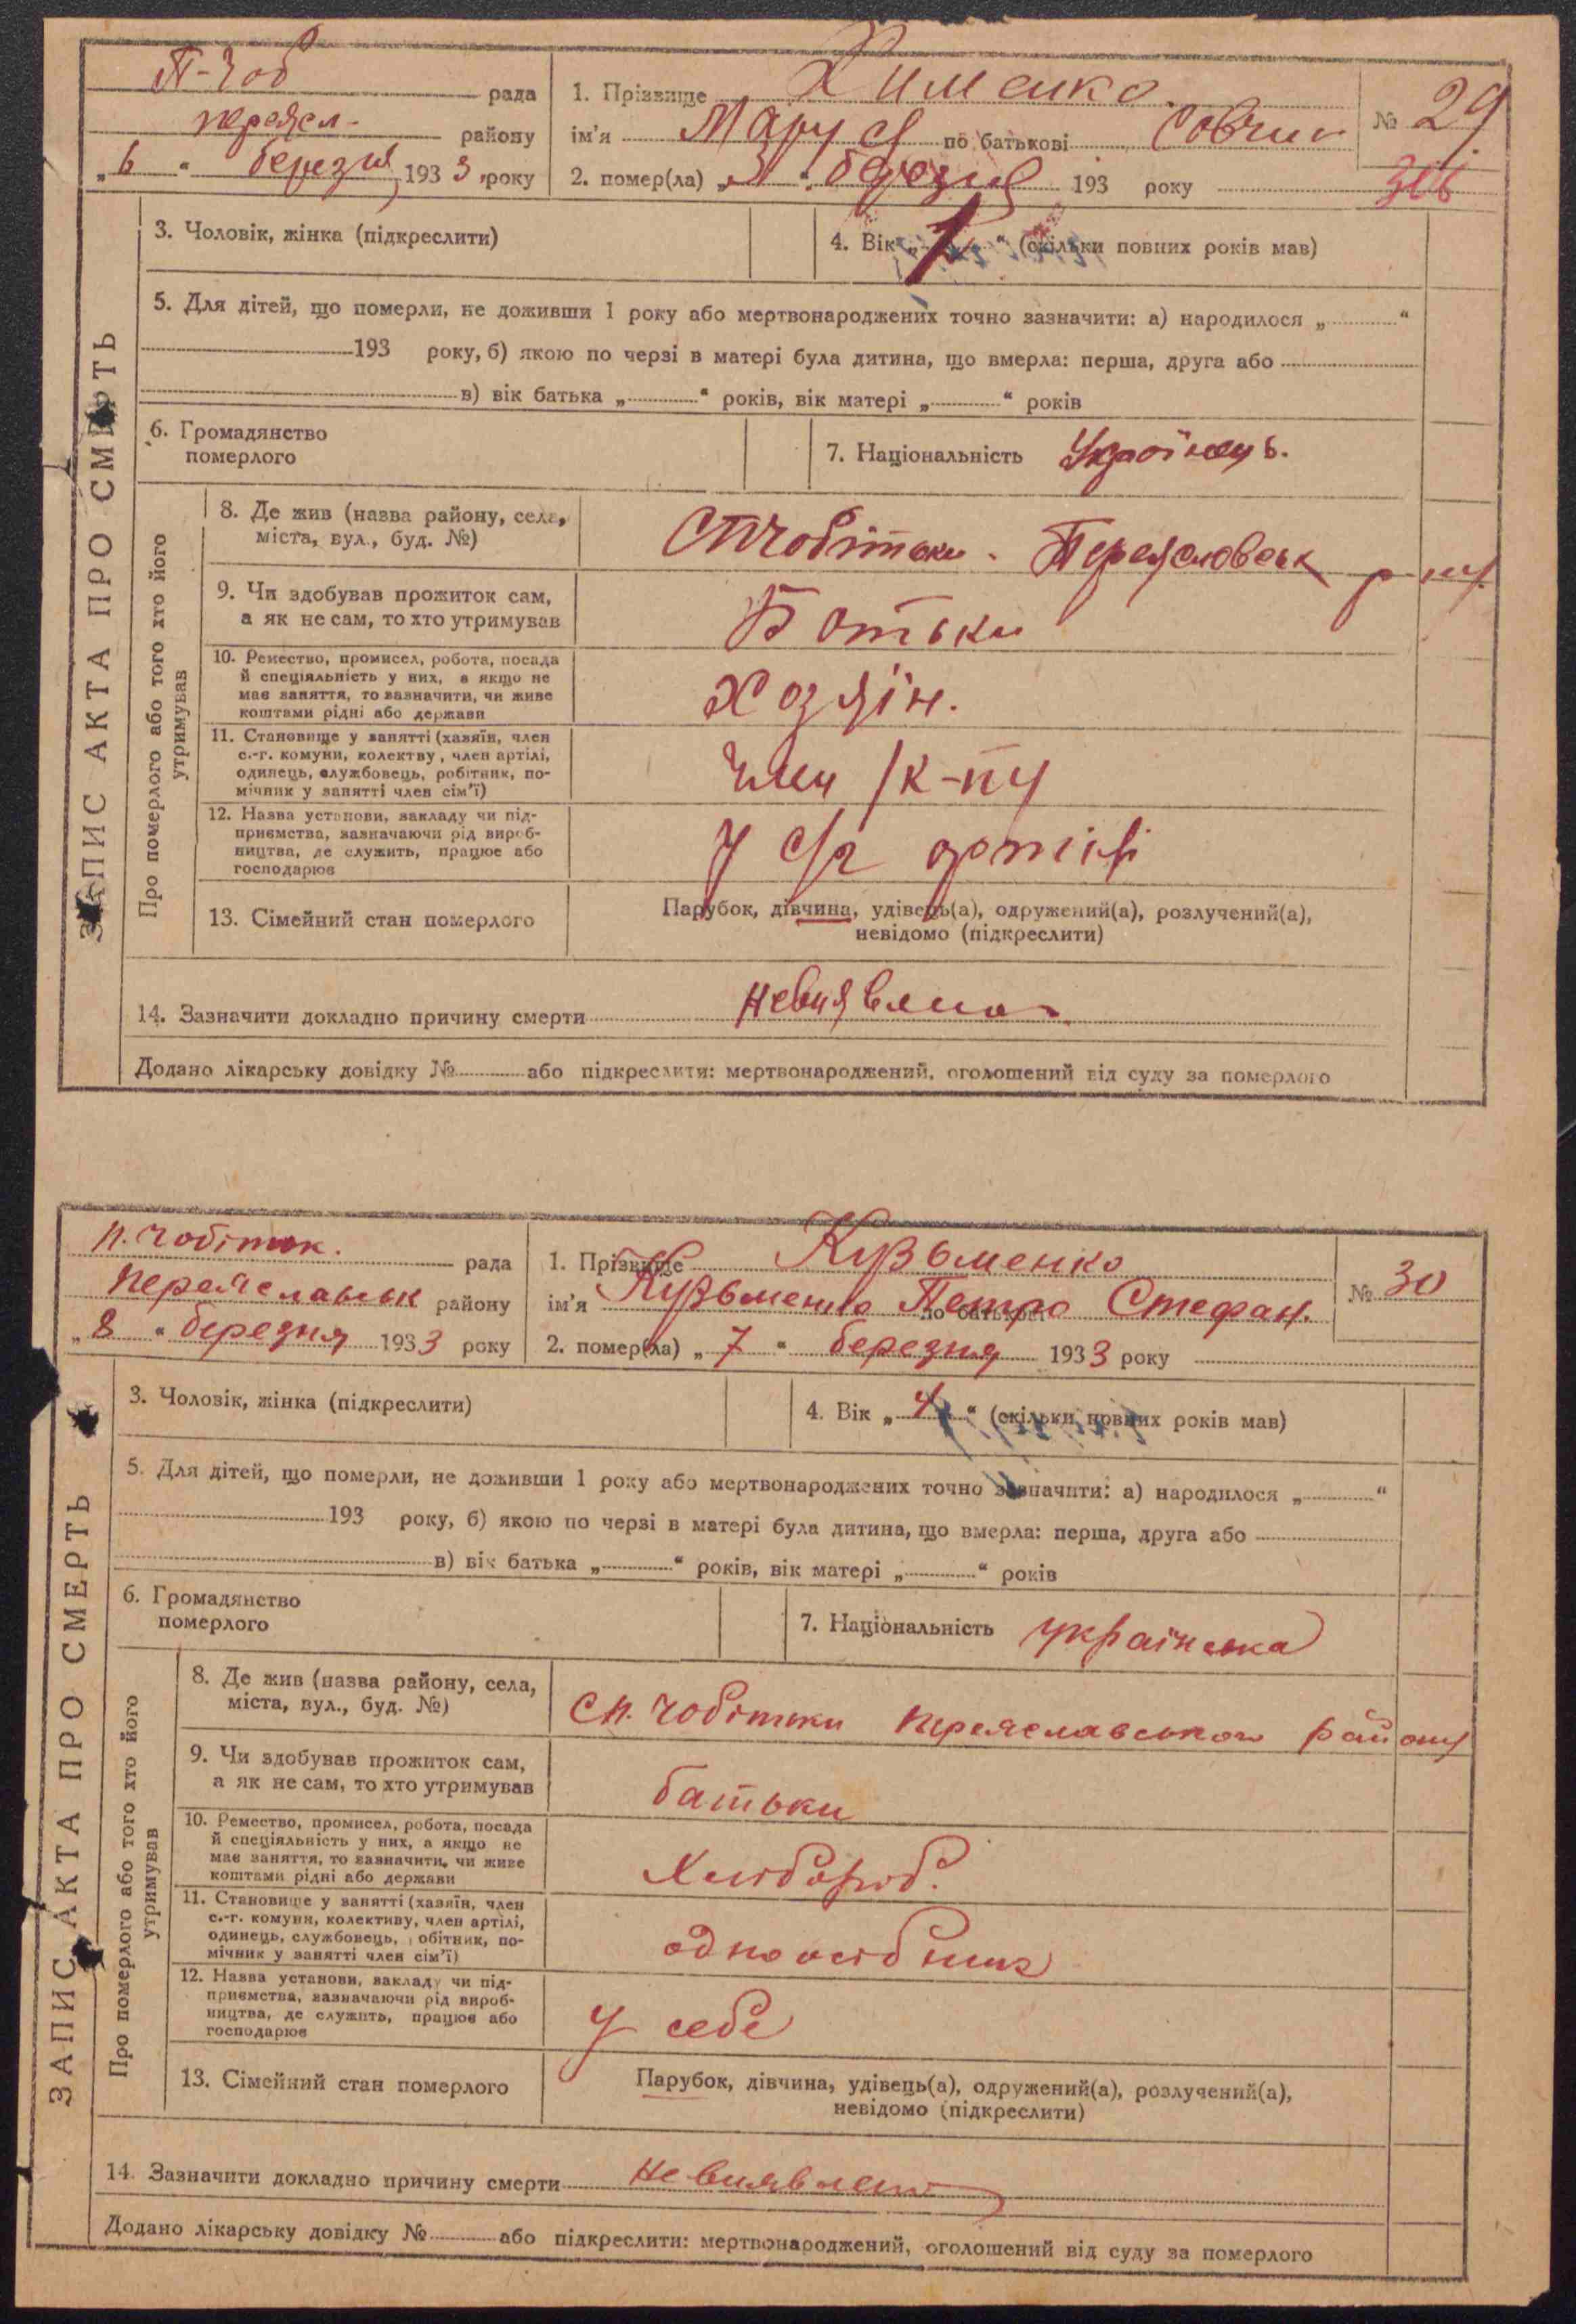 П-Чоб рада
переясл- району
„6“ березня 1933 року
1. Прізвище Хименко
ім'я Маруся по батькові Савчин
№ 29
2. помер(ла) „ “ березня 193 року
3. Чоловік, жінка (підкреслити)
4. Вік „1“ (скільки повних років мав)
5. Для дітей, що померли, не доживши 1 року або мертвонароджених точно зазначити: а) народилося „ “
193 року, б) якою по черзі в матері була дитина, що вмерла: перша, друга або
в) вік батька „ “ років, вік матері „ “ років
6. Громадянство
померлого
7. Національність Українець.
ЗАПИС АКТА ПРО СМЕРТЬ
Про померлого або того хто його
утримував
8. Де жив (назва району, села,
міста, вул., буд. №)
СПЧобітьки. Переясловськ р-ну.
9. Чи здобував прожиток сам,
а як не сам, то хто утримував
Ботьки
10. Ремество, промисел, робота, посада
й спеціяльність у них, а якщо не
має заняття, то зазначити, чи живе
коштами рідні або держави
Хозяїн.
11. Становище у занятті (хазяїн, член
с.-г. комуни, колектву, член артілі,
одинець, службовець, робітник, по-
мічник у занятті член сім'ї)
член к-пу
12. Назва установи, закладу чи під-
приємства, зазначаючи рід вироб-
ництва, де служить, працює або
господарює
у с/г артілі
13. Сімейний стан померлого
Парубок, дівчина, удівець(а), одружений(а), розлучений(а),
невідомо (підкреслити)
14. Зазначити докладно причину смерти невиявлено
Додано лікарську довідку № або підкреслити: мертвонароджений, оголошений від суду за померлого
п. чобіток. рада
переяславськ району
„8“ березня 1933 року
1. Прізвище Кузьменко
ім'я Кузьменко Петро по батькові Стефан.
№ 30
2. помер(ла) „7“ березня 1933 року
3. Чоловік, жінка (підкреслити)
4. Вік „4“ (скільки повних років мав)
5. Для дітей, що померли, не доживши 1 року або мертвонароджених точно зазначити: а) народилося „ “
193 року, б) якою по черзі в матері була дитина, що вмерла: перша, друга або
в) вік батька „ “ років, вік матері „ “ років
6. Громадянство
померлого
7. Національність українська
ЗАПИС АКТА ПРО СМЕРТЬ
Про померлого або того хто його
утримував
8. Де жив (назва району, села,
міста, вул., буд. №)
с п. чобітьки переяславського району
9. Чи здобував прожиток сам,
а як не сам, то хто утримував
батьки
10. Ремество, промисел, робота, посада
й спеціяльність у них, а якщо не
має заняття, то зазначити, чи живе
коштами рідні або держави
Хлібороб.
11. Становище у занятті (хазяїн, член
с.-г. комуни, колективу, член артілі,
одинець, службовець, робітник, по-
мічник у занятті член сім'ї)
одноосібник
12. Назва установи, закладу чи під-
приємства, зазначаючи рід вироб-
ництва, де служить, працює або
господарює
у себе
13. Сімейний стан померлого
Парубок, дівчина, удівець(а), одружений(а), розлучений(а),
невідомо (підкреслити)
14. Зазначити докладно причину смерти не виявлено
Додано лікарську довідку № або підкреслити: мертвонароджений, оголошений від суду за померлого